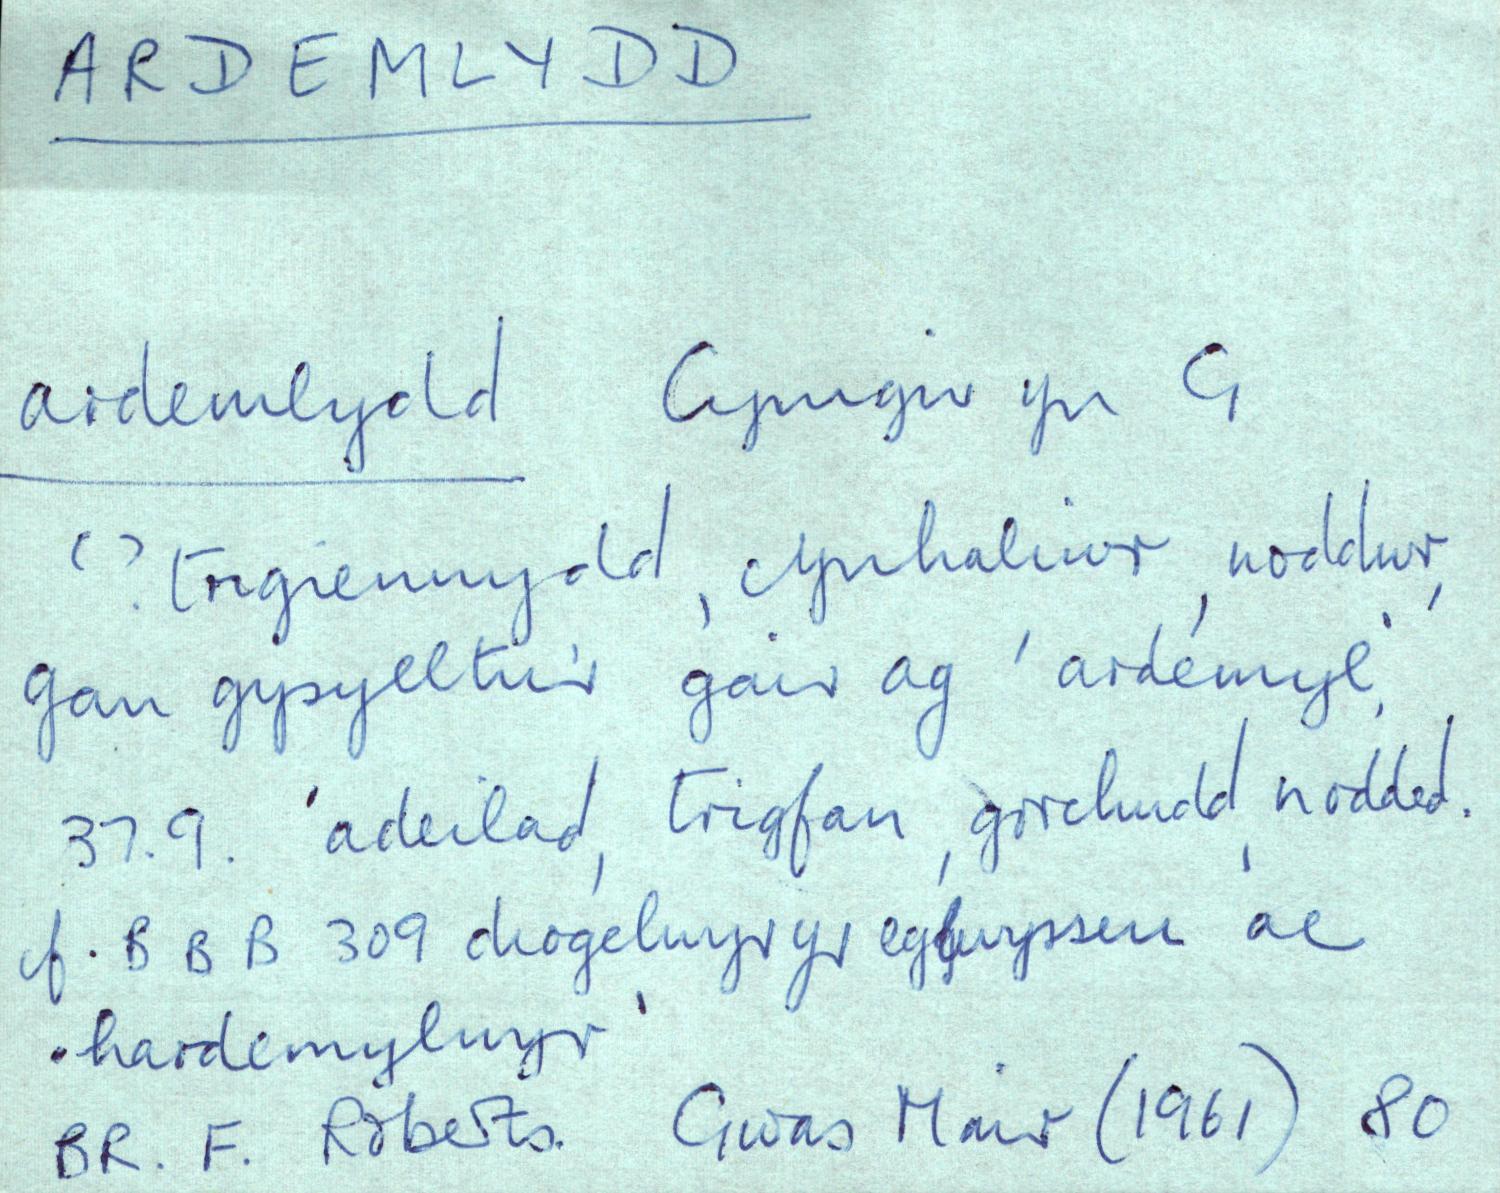 ARDEMLYDD
ardemlydd Cynigir yn G
'? trigiennydd, cynhaliwr, noddwr,
gan gysylltu'r gair ag 'ardemyl'
37.9. 'adeilad, trigfan, gorchudd, nodded.
cf. BBB 309 diogelwyr yr eglwyssen ae
hardemylwyr'
BR. F. Roberts. Gwas Mair (1961) 80